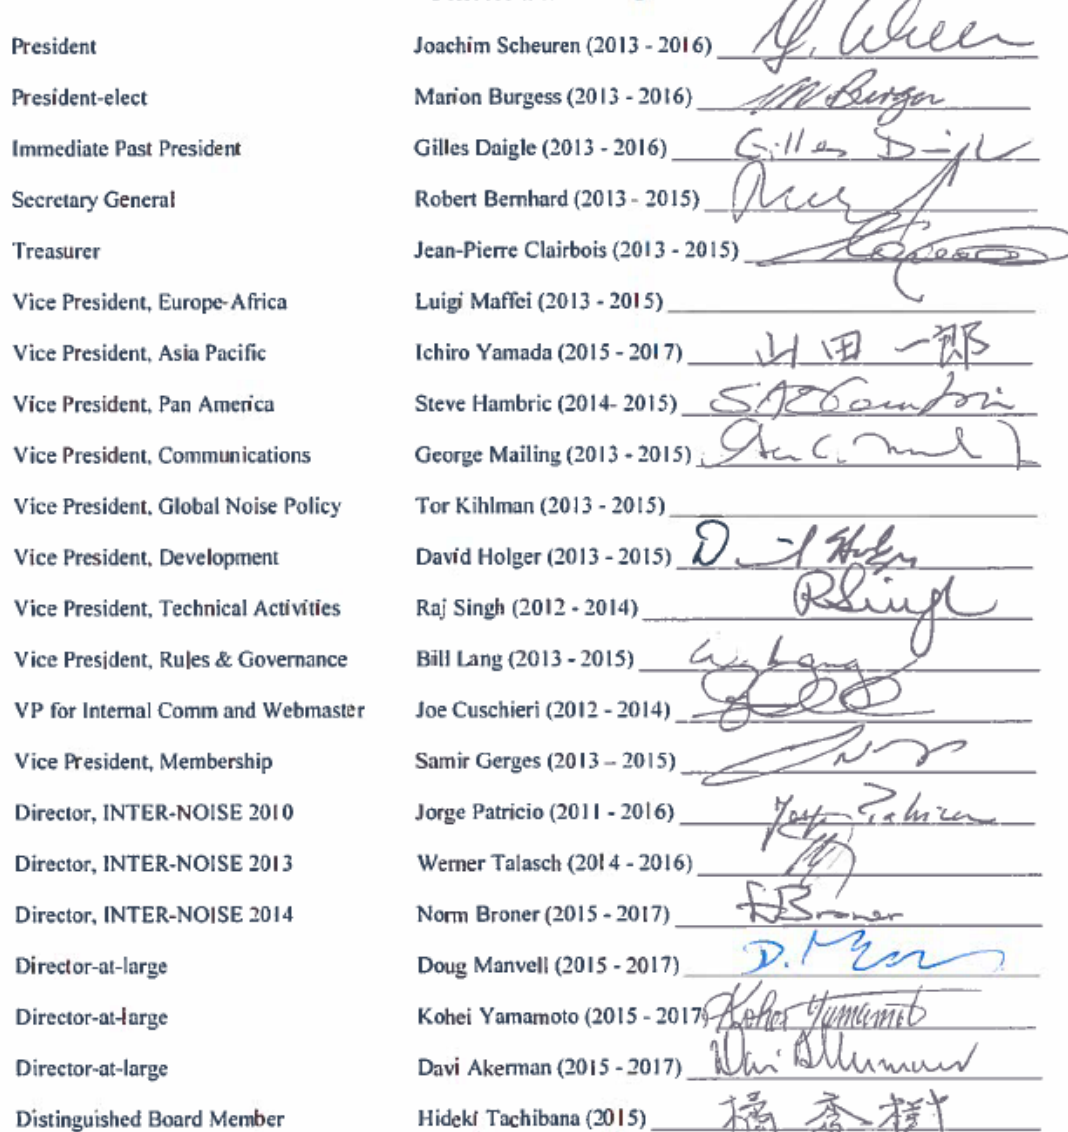 President Joachim Scheuren (2013 - 2016)
President-elect Marion Burgess (2013 - 2016) M Burgess
Immediate Past President Gilles Daigle (2013 - 2016) Gilles Daigle
Secretary General Robert Bernhard (2013 - 2015)
Treasurer Jean-Pierre Clairbois (2013 - 2015)
Vice President, Europe-Africa Luigi Maffei (2013 - 2015)
Vice President, Asia Pacific Ichiro Yamada (2015 - 2017) 山田 一郎
Vice President, Pan America Steve Hambric (2014- 2015)
Vice President, Communications George Mailing (2013 - 2015)
Vice President, Global Noise Policy Tor Kihlman (2013 - 2015)
Vice President, Development David Holger (2013 - 2015) David Holger
Vice President, Technical Activities Raj Singh (2012 - 2014) RSingh
Vice President, Rules & Governance Bill Lang (2013 - 2015) Lang
VP for Internal Comm and Webmaster Joe Cuschieri (2012 - 2014)
Vice President, Membership Samir Gerges (2013 – 2015)
Director, INTER-NOISE 2010 Jorge Patricio (2011 - 2016) Jorge Patricio
Director, INTER-NOISE 2013 Werner Talasch (2014 - 2016)
Director, INTER-NOISE 2014 Norm Broner (2015 - 2017) Broner
Director-at-large Doug Manvell (2015 - 2017) D.
Director-at-large Kohei Yamamoto (2015 - 2017) Kohei Yamamoto
Director-at-large Davi Akerman (2015 - 2017) Davi Akerman
Distinguished Board Member Hideki Tachibana (2015) 橘 秀樹